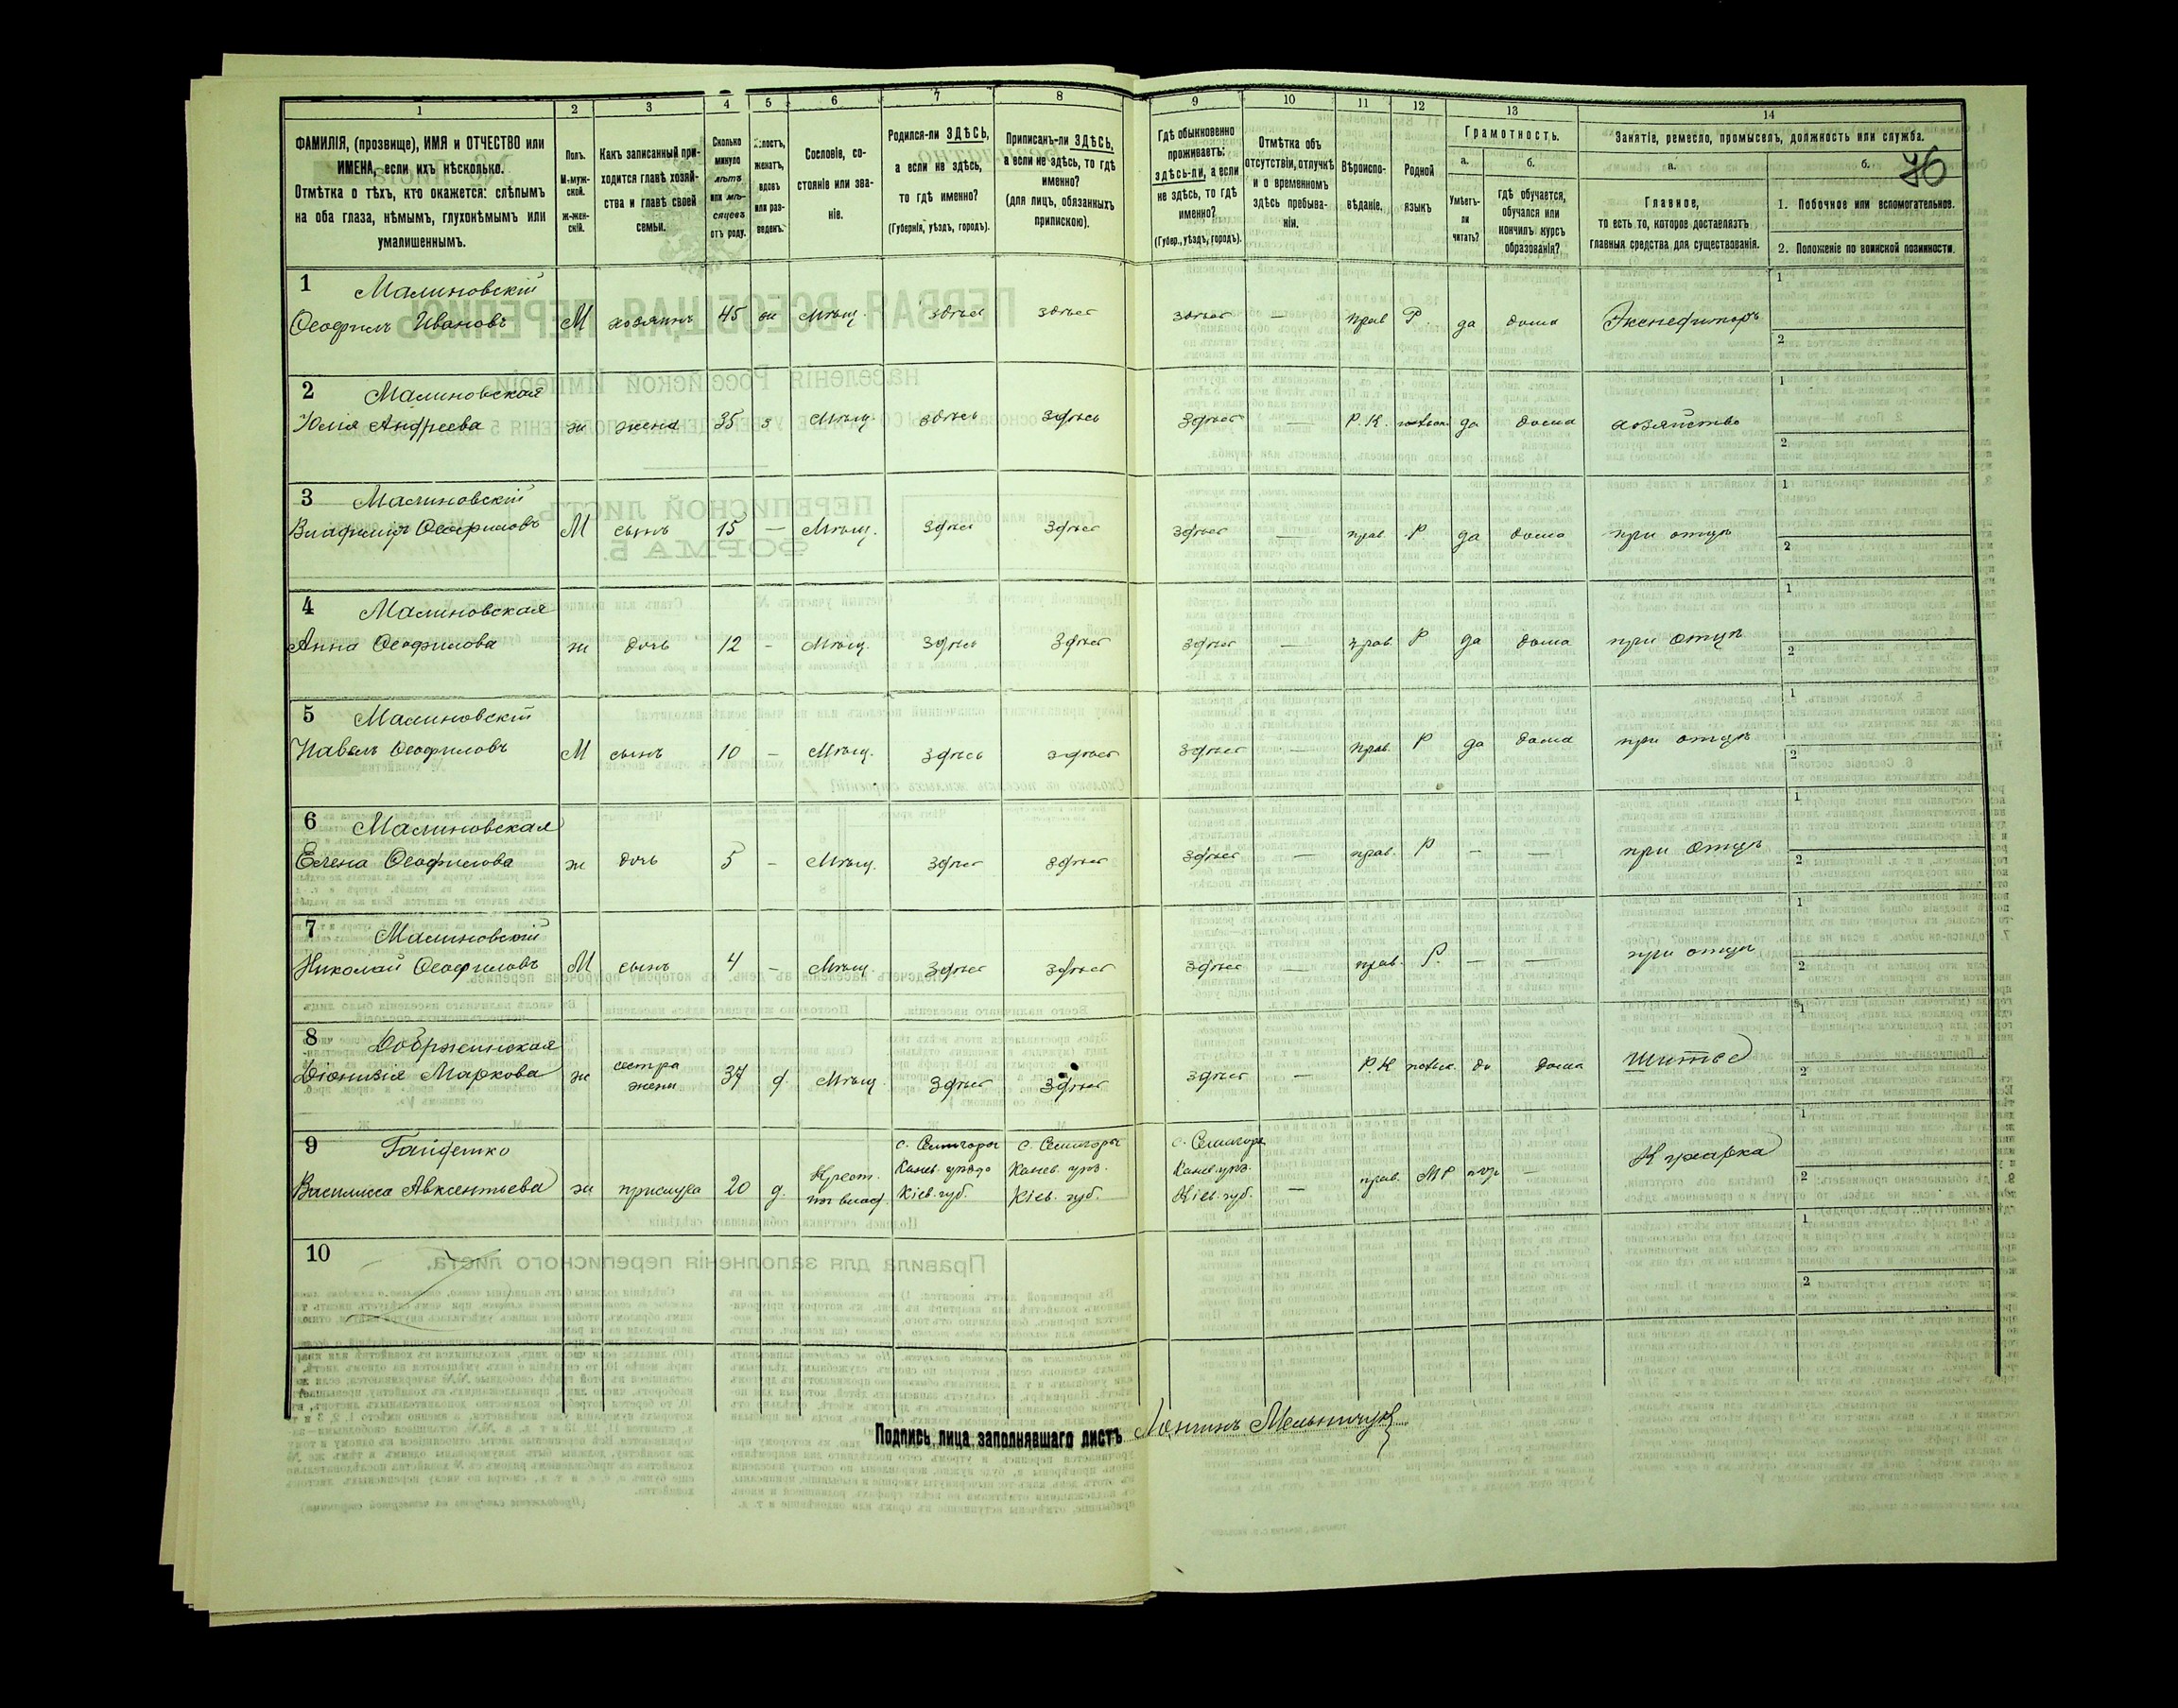 1 2 3 4 5 6 7 8 9 10 11 12 13 14
ФАМИЛІЯ, (прозвище), ИМЯ и ОТЧЕСТВО или
ИМЕНА, если ихъ нѣсколько.
Отмѣтка о тѣхъ, кто окажется: слѣпымъ
на оба глаза, нѣмымъ, глухонѣмымъ или
умалишеннымъ.
Полъ.
М-муж-
ской.
ж-жен-
скій.
Какъ записанный при-
ходится главѣ хозяй-
ства и главѣ своей
семьи.
Сколько
минуло
лѣтъ
или мѣ-
сяцевъ
отъ роду.
женатъ,
вдовъ
или раз-
веденъ.
Сословіе, со-
стояніе или зва-
ніе.
Родился-ли ЗДѢСЬ,
а если не здѣсь,
то гдѣ именно?
(Губернія, уѣздъ, городъ).
Приписанъ-ли ЗДѢСЬ,
а если не здѣсь, то гдѣ
именно?
(для лицъ, обязанныхъ
припискою).
Гдѣ обыкновенно
проживаетъ:
здѣсь-ли, а если
не здѣсь, то гдѣ
именно?
(Губер., уѣздъ, городъ).
Отмѣтка объ
отсутствіи, отлучкѣ
и о временномъ
здѣсь пребыва-
ніи.
Вѣроиспо-
вѣданіе.
Родной
языкъ
Грамотность.
а. б.
Умѣетъ-
ли
читать?
Гдѣ обучается,
обучался или
кончилъ курсъ
образованія?
Занятіе, ремесло, промыселъ, должность или служба.
а. б.
76
Главное,
то есть то, которое доставляетъ
главныя средства для существованія.
1. Побочное или вспомогательное.
2. Положеніе по воинской повинности.
1 Малиновскій
Ѳеофилъ Ивановъ М хозяинъ 45 ж Мѣщ. здѣсь здѣсь здѣсь — прав Р да дома
1
2
2 Малиновская
Юлія Андреева ж жена 35 з Мѣщ. здѣсь здѣсь здѣсь — Р. К. да дома хозяйство
1
2
3 Малиновскій
Ѳеофиловъ М сынъ 15 — Мѣщ. здѣсь здѣсь здѣсь — прав. Р да дома при отцѣ
1
2
4 Малиновская
Анна Ѳеофилова ж дочь 12 - Мѣщ. здѣсь здѣсь здѣсь — прав. Р да дома при отцѣ
1
2
5 Малиновскій
Павелъ Ѳеофиловъ М сынъ 10 - Мѣщ. здѣсь здѣсь здѣсь — прав. Р да дома при отцѣ
1
2
6 Малиновская
Елена Ѳеофилова ж дочь 5 - Мѣщ. здѣсь здѣсь здѣсь — прав. Р - — при отцѣ
1
2
7 Малиновскій
Николай Ѳеофиловъ М сынъ 4 - Мѣщ. здѣсь здѣсь здѣсь — прав. Р. - — при отцѣ
1
2
8 Добржинская
Діонизія Маркова ж сестра
жены 37 д Мѣщ здѣсь здѣсь здѣсь — Р.К польск. да дома шитье
1
2
9 Гайденко
Василиса Авксентьева ж прислуга 20 д. Крест.
с. Семигоры
Канев. уѣзда
Кіев. губ.
с. Семигоры
Канев. уѣз.
Кіев. губ.
с. Семигоры
Канев. уѣз.
Кіев. губ.
— прав. МР — Кухарка
1
2
10
1
2
Подпись лица заполнявшаго листъ Лонгинъ Мельничук